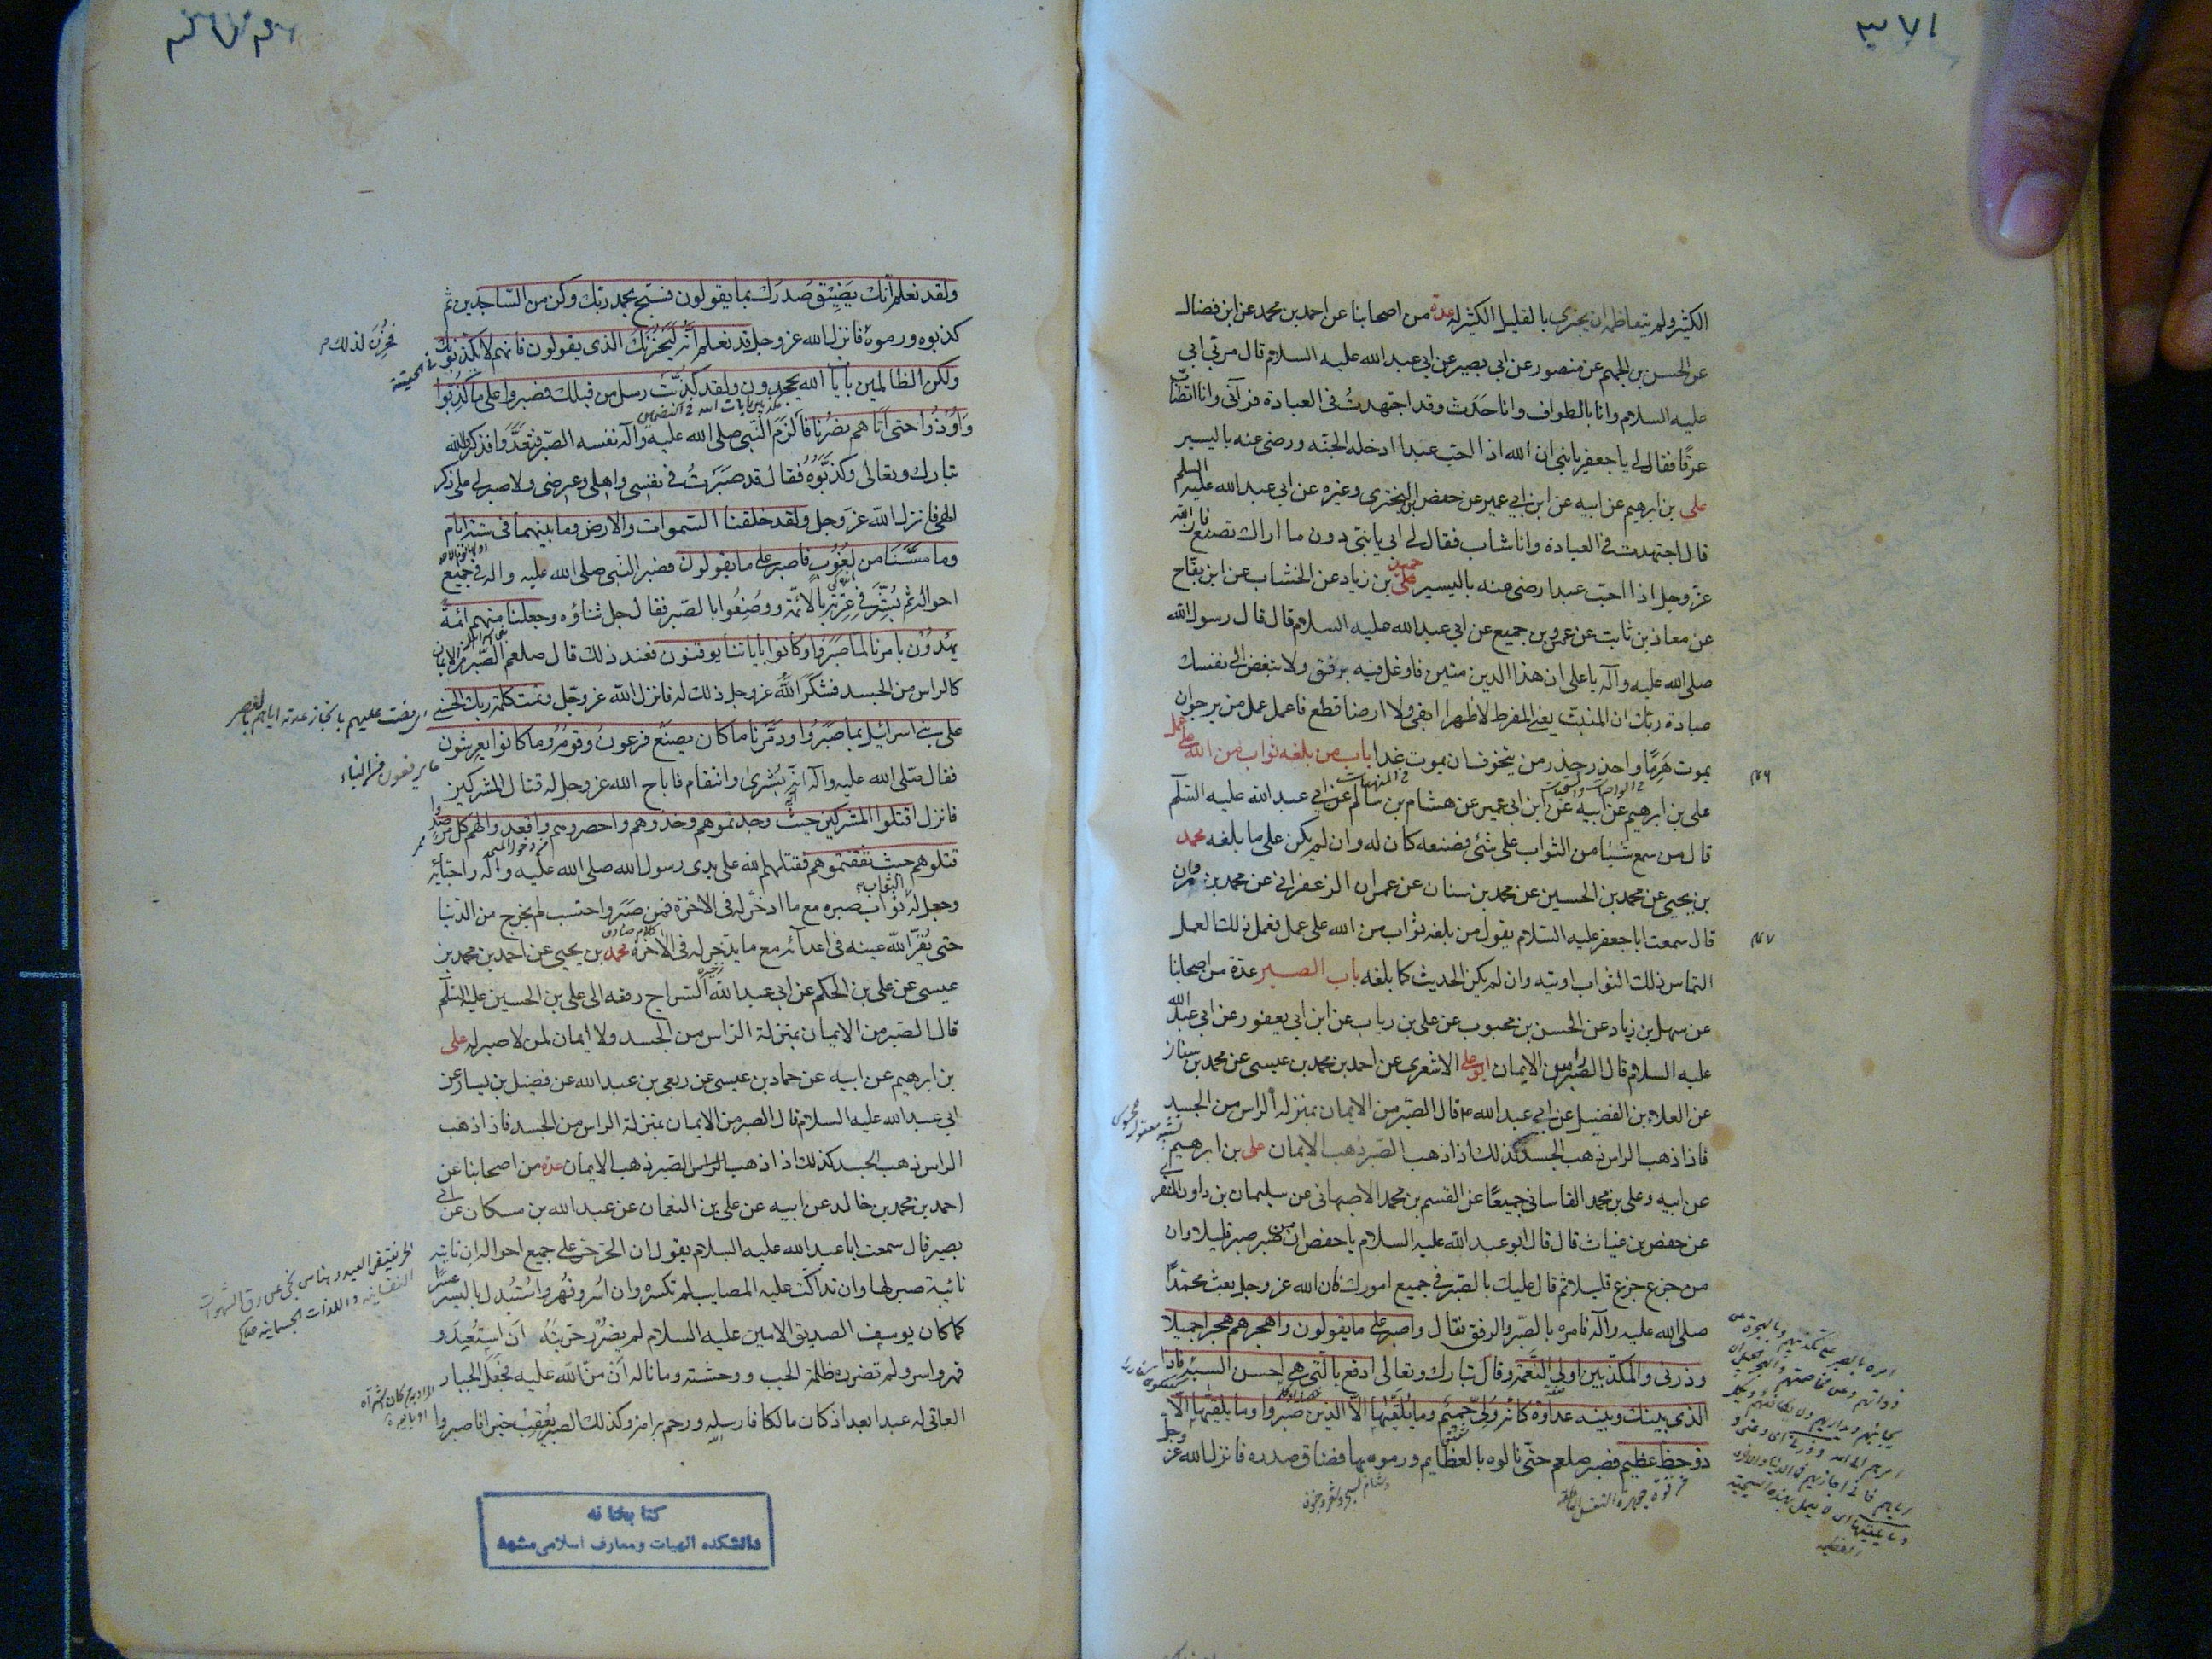 ٣٧١
الكثير ولم يتعاظمه ان يجزى بالقليل الكثير له عدة من اصحابنا عن احمد بن محمد عن ابن فضال
عن الحسن بن الجهم عن منصور عن ابى بصير عن ابى عبد الله عليه السلام قال مر بى ابى
عليه السلام وانا بالطواف وانا حدث وقد اجتهدت فى العبادة فرآنى وانا اتصاب
عرقا فقال لى يا جعفر يا بنى ان الله اذا احب عبدا ادخله الجنة ورضى عنه باليسير
على بن ابرهيم عن ابيه عن ابن ابى عمير عن حفص بن البخترى وغيره عن ابى عبد الله عليه السلم
قال اجتهدت فى العبادة وانا شاب فقال لى ابى يا بنى دون ما اراك تصنع فان الله
عز وجل اذا احب عبدا رضى عنه باليسير حميد بن زياد عن الخشاب عن ابن بقاح
عن معاذ بن ثابت عن عمرو بن جميع عن ابى عبد الله عليه السلام قال قال رسول الله
صلى الله عليه وآله يا على ان هذا الدين متين فاوغل فيه برفق ولا تبغض الى نفسك
عبادة ربك ان المنبت يعنى المفرط لا ظهرا ابقى ولا ارضا قطع فاعمل عمل من يرجو ان
يموت هرما واحذر حذر من يتخوف ان يموت غدا باب من بلغه ثواب من الله على عمل
على بن ابرهيم عن ابيه عن ابن ابى عمير عن هشام بن سالم عن ابى عبد الله عليه السلم
قال من سمع شيئا من الثواب على شئ فصنعه كان له وان لم يكن على ما بلغه محمد
بن يحيى عن محمد بن الحسين عن محمد بن سنان عن عمران الزعفرانى عن محمد بن مروان
قال سمعت ابا جعفر عليه السلام يقول من بلغه ثواب من الله على عمل فعمل ذلك العمل
التماس ذلك الثواب اوتيه وان لم يكن الحديث كما بلغه باب الصبر عدة من اصحابنا
عن سهل بن زياد عن الحسن بن محبوب عن على بن رياب عن ابن ابى يعفور عن ابى عبد الله
عليه السلام قال الصبر راس الايمان ابو على الاشعرى عن احمد بن محمد بن عيسى عن محمد بن سنان
عن العلاء بن الفضيل عن ابى عبد الله ع قال الصبر من الايمان بمنزلة الراس من الجسد
فاذا ذهب الراس ذهب الجسد كذلك اذا ذهب الصبر ذهب الايمان على بن ابرهيم
عن ابيه وعلى بن محمد القاسانى جميعا عن القسم بن محمد الاصبهانى عن سليمان بن داود المنقرى
عن حفص بن غياث قال قال ابو عبد الله عليه السلام يا حفص ان من صبر صبر قليلا وان
من جزع جزع قليلا ثم قال عليك بالصبر فى جميع امورك فان الله عز وجل بعث محمدا
صلى الله عليه وآله فامره بالصبر والرفق فقال واصبر على ما يقولون واهجرهم هجرا جميلا
وذرنى والمكذبين اولى النعمة وقال تبارك وتعالى ادفع بالتى هى احسن السيئة فاذا
الذى بينك وبينه عداوة كانه ولى حميم وما يلقيها الا الذين صبروا وما يلقيها الا
ذو حظ عظيم فصبر صلعم حتى نالوه بالعظايم ورموه بها فضاق صدره فانزل الله عز وجل
ولقد نعلم انك يضيق صدرك بما يقولون فسبح بحمد ربك وكن من الساجدين ثم
كذبوه ورموه فانزل الله عز وجل قد نعلم انه ليحزنك الذى يقولون فانهم لا يكذبونك
فحزن لذلك
ولكن الظالمين بآيا الله يجحدون ولقد كذبت رسل من قبلك فصبروا على ما كذبوا
واوذوا حتى اتاهم نصرنا فالزم النبى صلى الله عليه وآله نفسه الصبر فتعدوا فذكر الله
تبارك وتعالى وكذبوه فقال قد صبرت فى نفسى واهلى وعرضى ولا صبر لى على ذكر
الهى فانزل الله عز وجل ولقد خلقنا السموات والارض وما بينهما فى ستة ايام
وما مسنا من لغوب فاصبر على ما يقولون فصبر النبى صلى الله عليه واله فى جميع
احواله ثم بشر فى عترته بالائمة ووصفوا بالصبر فقال جل ثناؤه وجعلنا منهم ائمة
يهدون بامرنا لما صبروا وكانوا باياتنا يوقنون فعند ذلك قال صلعم الصبر من الايمان
كالراس من الجسد فشكر الله عز وجل ذلك له فانزل الله عز وجل وتمت كلمة ربك الحسنى
على بنى اسرائيل بما صبروا ودمرنا ما كان يصنع فرعون وقومه وما كانوا يعرشون
فقال صلى الله عليه وآله انه بشرى وانتقام فاباح الله عز وجل له قتال المشركين
فانزل اقتلوا المشركين حيث وجدتموهم وخذوهم واحصروهم واقعدوا لهم كل مرصد
قتلوهم حيث ثقفتموهم فقتلهم الله على يدى رسول الله صلى الله عليه وآله واحبائه
وجعل له ثواب صبره مع ما ادخر له فى الاخرة فمن صبر واحتسب لم يخرج من الدنيا
حتى يقر الله عينه فى اعدائه مع ما يدخر له فى الاخرة محمد بن يحيى عن احمد بن محمد بن
عيسى عن على بن الحكم عن ابى عبد الله السراج رفعه الى على بن الحسين عليه السلم
قال الصبر من الايمان بمنزلة الراس من الجسد ولا ايمان لمن لا صبر له على
بن ابرهيم عن ابيه عن حماد بن عيسى عن ربعى بن عبد الله عن فضيل بن يسار عن
ابى عبد الله عليه السلام قال الصبر من الايمان بمنزلة الراس من الجسد فاذا ذهب
الراس ذهب الجسد كذلك اذا ذهب الصبر ذهب الايمان عدة من اصحابنا عن
احمد بن محمد بن خالد عن ابيه عن على بن النعمان عن عبد الله بن مسكان عن ابى
بصير قال سمعت ابا عبد الله عليه السلام يقول ان الحر حر على جميع احواله ان نابته
نائبة صبر لها وان تداكت عليه المصايب لم تكسره وان اسر وقهر واستبدل باليسر عسرا
كما كان يوسف الصديق الامين عليه السلام لم يضرر حريته ان استعبد و
قهر واسر ولم تضرره ظلمة الجب ووحشته وما ناله ان من الله عليه فجعل الجبار
العاتى له عبدا بعد اذ كان مالكا فارسله ورحم به امة وكذلك الصبر يعقب خيرا فاصبروا
كتابخانه
دانشكده الهيات ومعارف اسلامى مشهد